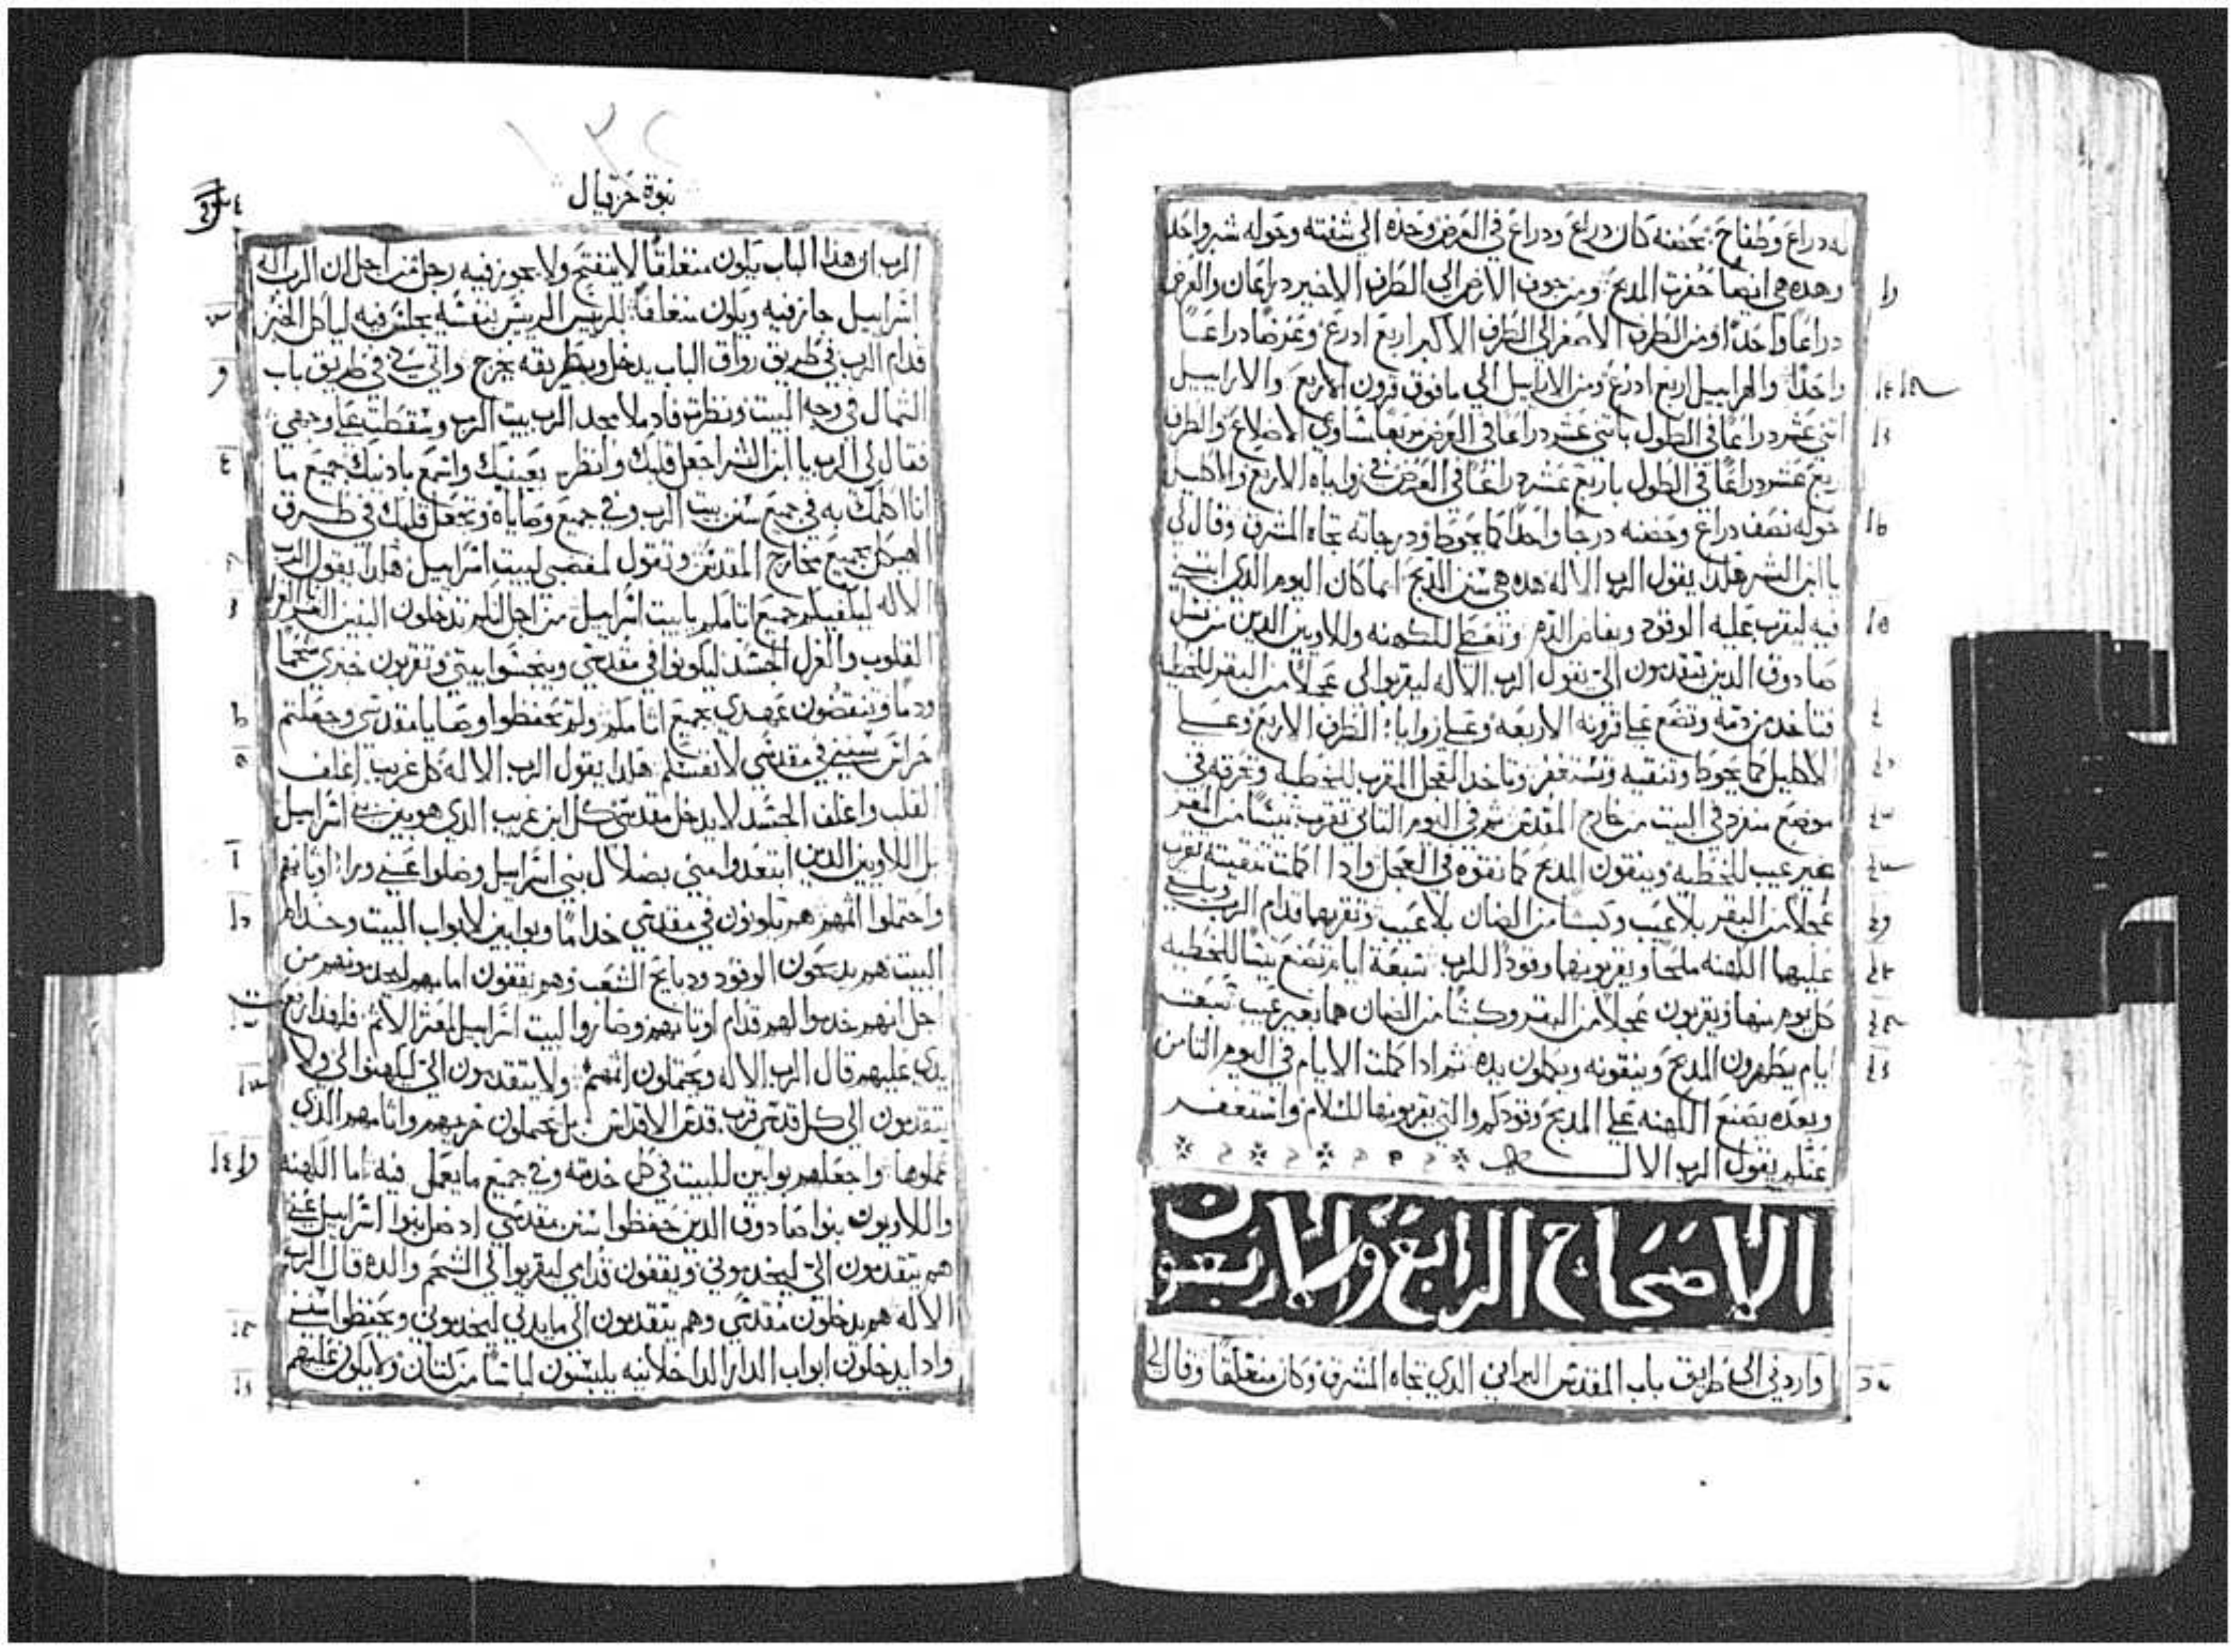 له دراع وطفاح بحضنه كان دراع ودراع في العرض وحده الي شفته وحوله شبر واحد
وهده هي ايضا حفرت المدبح ومن جوف الارض الي الطرف الاخير دراعان والعرض
دراعا واحدا ومن الطرف الاصغر الي الطرف الاكبر اربع ادرع وعرضا دراعا
واحدا والهراييل اربع ادرع ومن الاراييل الي ما فوق قرون الاربع والاراييل
اتني عشر دراعا في الطول باتني عشر دراعا في العرض مربعا متساوي الاضلاع والطرف
ربع عشر دراعا في الطول باربع عشر دراعا في العرض في زواياه الاربع والاكليل
حوله نصف دراع وحضنه درجا واحدا كما يحوط ودرجاته تجاه المشرق وقال لي
يا ابن البشر هكدا يقول الرب الاله هده هي سنن المدبح ايما كان اليوم الدي ابتني
فيه ليقرب عليه الوقود ويفاض الدم وتعطي للكهنه وللاويين الدين من نسل
صادوق الدين يتقدمون الي يقول الرب الاله ليقربوا لي عجلا من البقر للخطيه
فتاخد من دمه وتضع علي قرونه الاربعه وعلي زوايا الطرف الاربع وعلي
الاكليل كما يحوط وتنقيه وتستغفر وتاخد العجل المقرب للخطيه وتحرقه في
موضع منفرد في البيت من خارج المقدس ثم في اليوم التاني تقرب تيسا من المعز
بغير عيب للخطيه وينقون المدبح كما نقوه في العجل وادا اكملت تنقيته تقرب
عجلا من البقر بلا عيب وكبشا من الضان بلا عيب وتقربهما قدام الرب ويلقي
عليهما الكهنه ملحا ويقربونهما وقودا للرب سبعة ايام تضع تيسا للخطيه
كل يوم منها ويقربون عجلا من البقر وكبشا من الضان هما بغير عيب سبعت
ايام يطهرون المدبح وينقونه ويكملون يده ثم ادا كملت الايام في اليوم التامن
وبعده يصنع الكهنه علي المدبح وقودكم والتي يقربونها للسلام واستغفر
عنكم يقول الرب الاله
الاصحاح الرابع والاربعون
واردني الي طريق باب المقدس البراني الدي تجاه المشرق وكان منغلقا وقال لي
١٣٢
نبوة حزقيال
الرب ان هدا الباب يكون منغلقا لا ينفتح ولا يجوز فيه رجل من اجل ان الرب اله
اسراييل جاز فيه ويكون منغلقا للرييس الرييس بنفسه يجلس فيه لياكل الخبز
قدام الرب في طريق رواق الباب يدخل وبطريقه يخرج واتي بي في طريق باب
الشمال في وجه البيت ونظرت فادملا مجد الرب بيت الرب وسقطت علي وجهي
فقال لي الرب يا ابن البشر اجعل قلبك وانظر بعينيك واسمع بادنيك جميع ما
انا اكلمك به في جميع سنن بيت الرب وفي جميع وصاياه وتجعل قلبك في طرق
الهيكل بجميع مخارج المقدس وتقول لمغضبي لبيت اسراييل هكدا يقول الرب
الاله ليكفيكم جميع اتامكم يا بيت اسراييل من اجل انكم تدخلون البنين الغربا الغرل
القلوب والغرل الجسد ليكونوا في مقدسي وينجسوا بيتي وتقربون خبزي شحما
ودما وتنقضون عهدي بجميع اتامكم ولم تحفظوا وصايا مقدسي وجعلتم
حراس سنني في مقدسي لانفسكم هكدا يقول الرب الاله كل غريب اغلف
القلب واغلف الجسد لا يدخل مقدسي كل ابن غريب الدي هو بين بني اسراييل
بل اللاويين الدين ابتعدوا مني بضلال بني اسراييل وضلوا عني ورا اوتانهم
واحتملوا اتمهم هم يكونون في مقدسي خداما وبوابين لابواب البيت وخدام
البيت هم يدبحون الوقود ودبايح الشعب وهم يقفون امامهم ليخدمونهم من
اجل انهم خدموا لهم قدام اوتانهم وصاروا لبيت اسراييل لمعتر الاتم فلهدا رفعت
يدي عليهم قال الرب الاله ويحتملون اتمهم ولا يتقدمون الي ليكهنوا لي ولا
يتقدمون الي كل قدس قرب قدس الاقداس بل يحتملون خزيهم واتامهم الدي
عملوها واجعلهم بوابين للبيت في كل خدمته وفي جميع ما يعمل فيه اما الكهنه
واللاويون بنوا صادوق الدين حفظوا سنن مقدسي اد ضل بنوا اسراييل عني
هم يتقدمون الي ليخدموني ويقفون قدامي ليقربوا لي الشحم والدم قال الرب
الاله هم يدخلون مقدسي وهم يتقدمون الي مايدتي ليخدموني ويحفظوا سنني
وادا يدخلون ابواب الدار الداخلانيه يلبسون لباسا من كتان ولا يكون عليهم